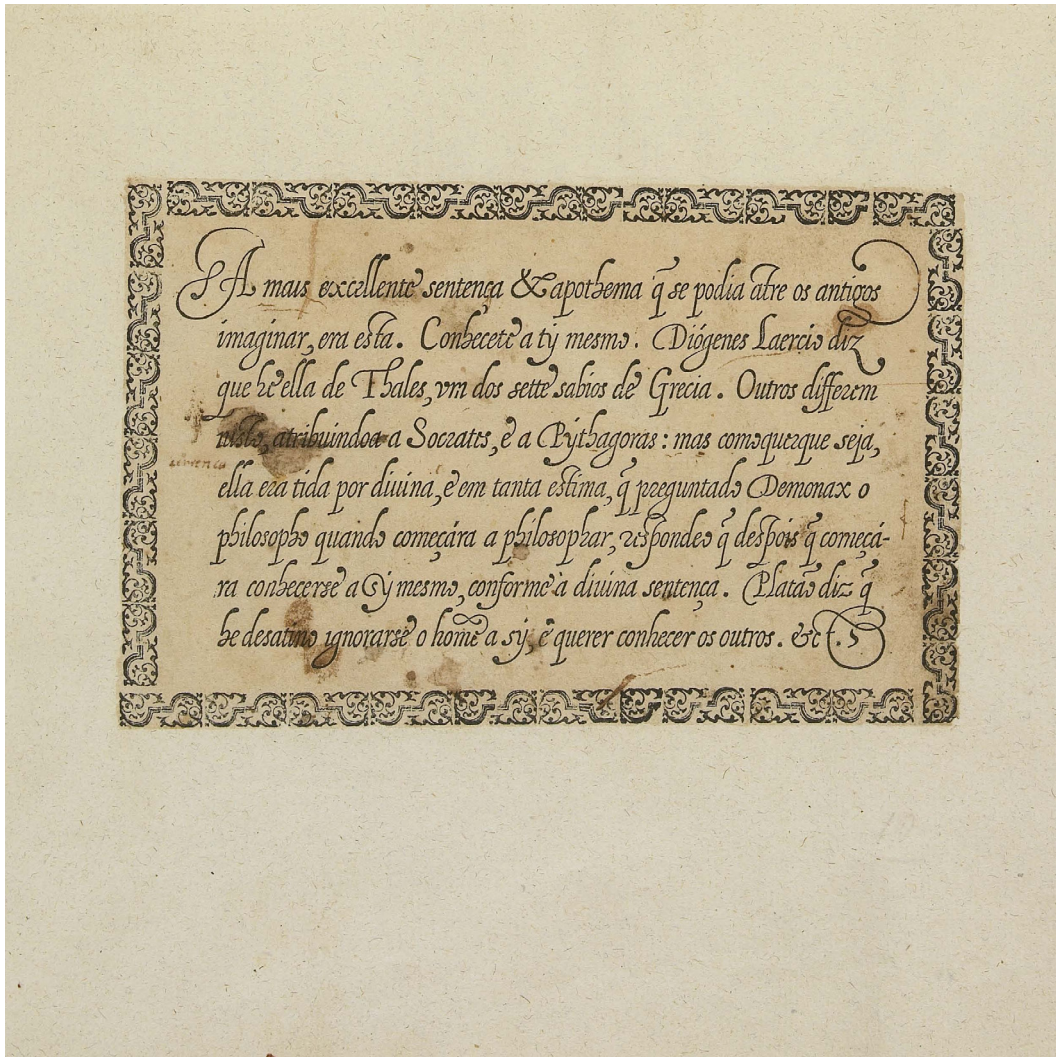 A mais excellente sentença & apothema q̃ se podia ãtre os antigos
imaginar, era esta. Conhecete a ty mesmo. Diógenes Laercio diz
que he ella de Thales, vm dos sette sabios de Grecia. Outros differem
nisto, atribuindoa a Socrates, e a Pythagoras: mas comoquerque seja,
ella era tida por diuina, e em tanta estima, q̃ preguntado Demonax o
philosopho quando começára a philosophar, respondeo q̃ despois q̃ começá-
ra conhecerse a sy mesmo, conforme a diuina sentença. Platão diz q̃
he desatino ignorarse o homẽ a sy, e querer conhecer os outros. &ct.